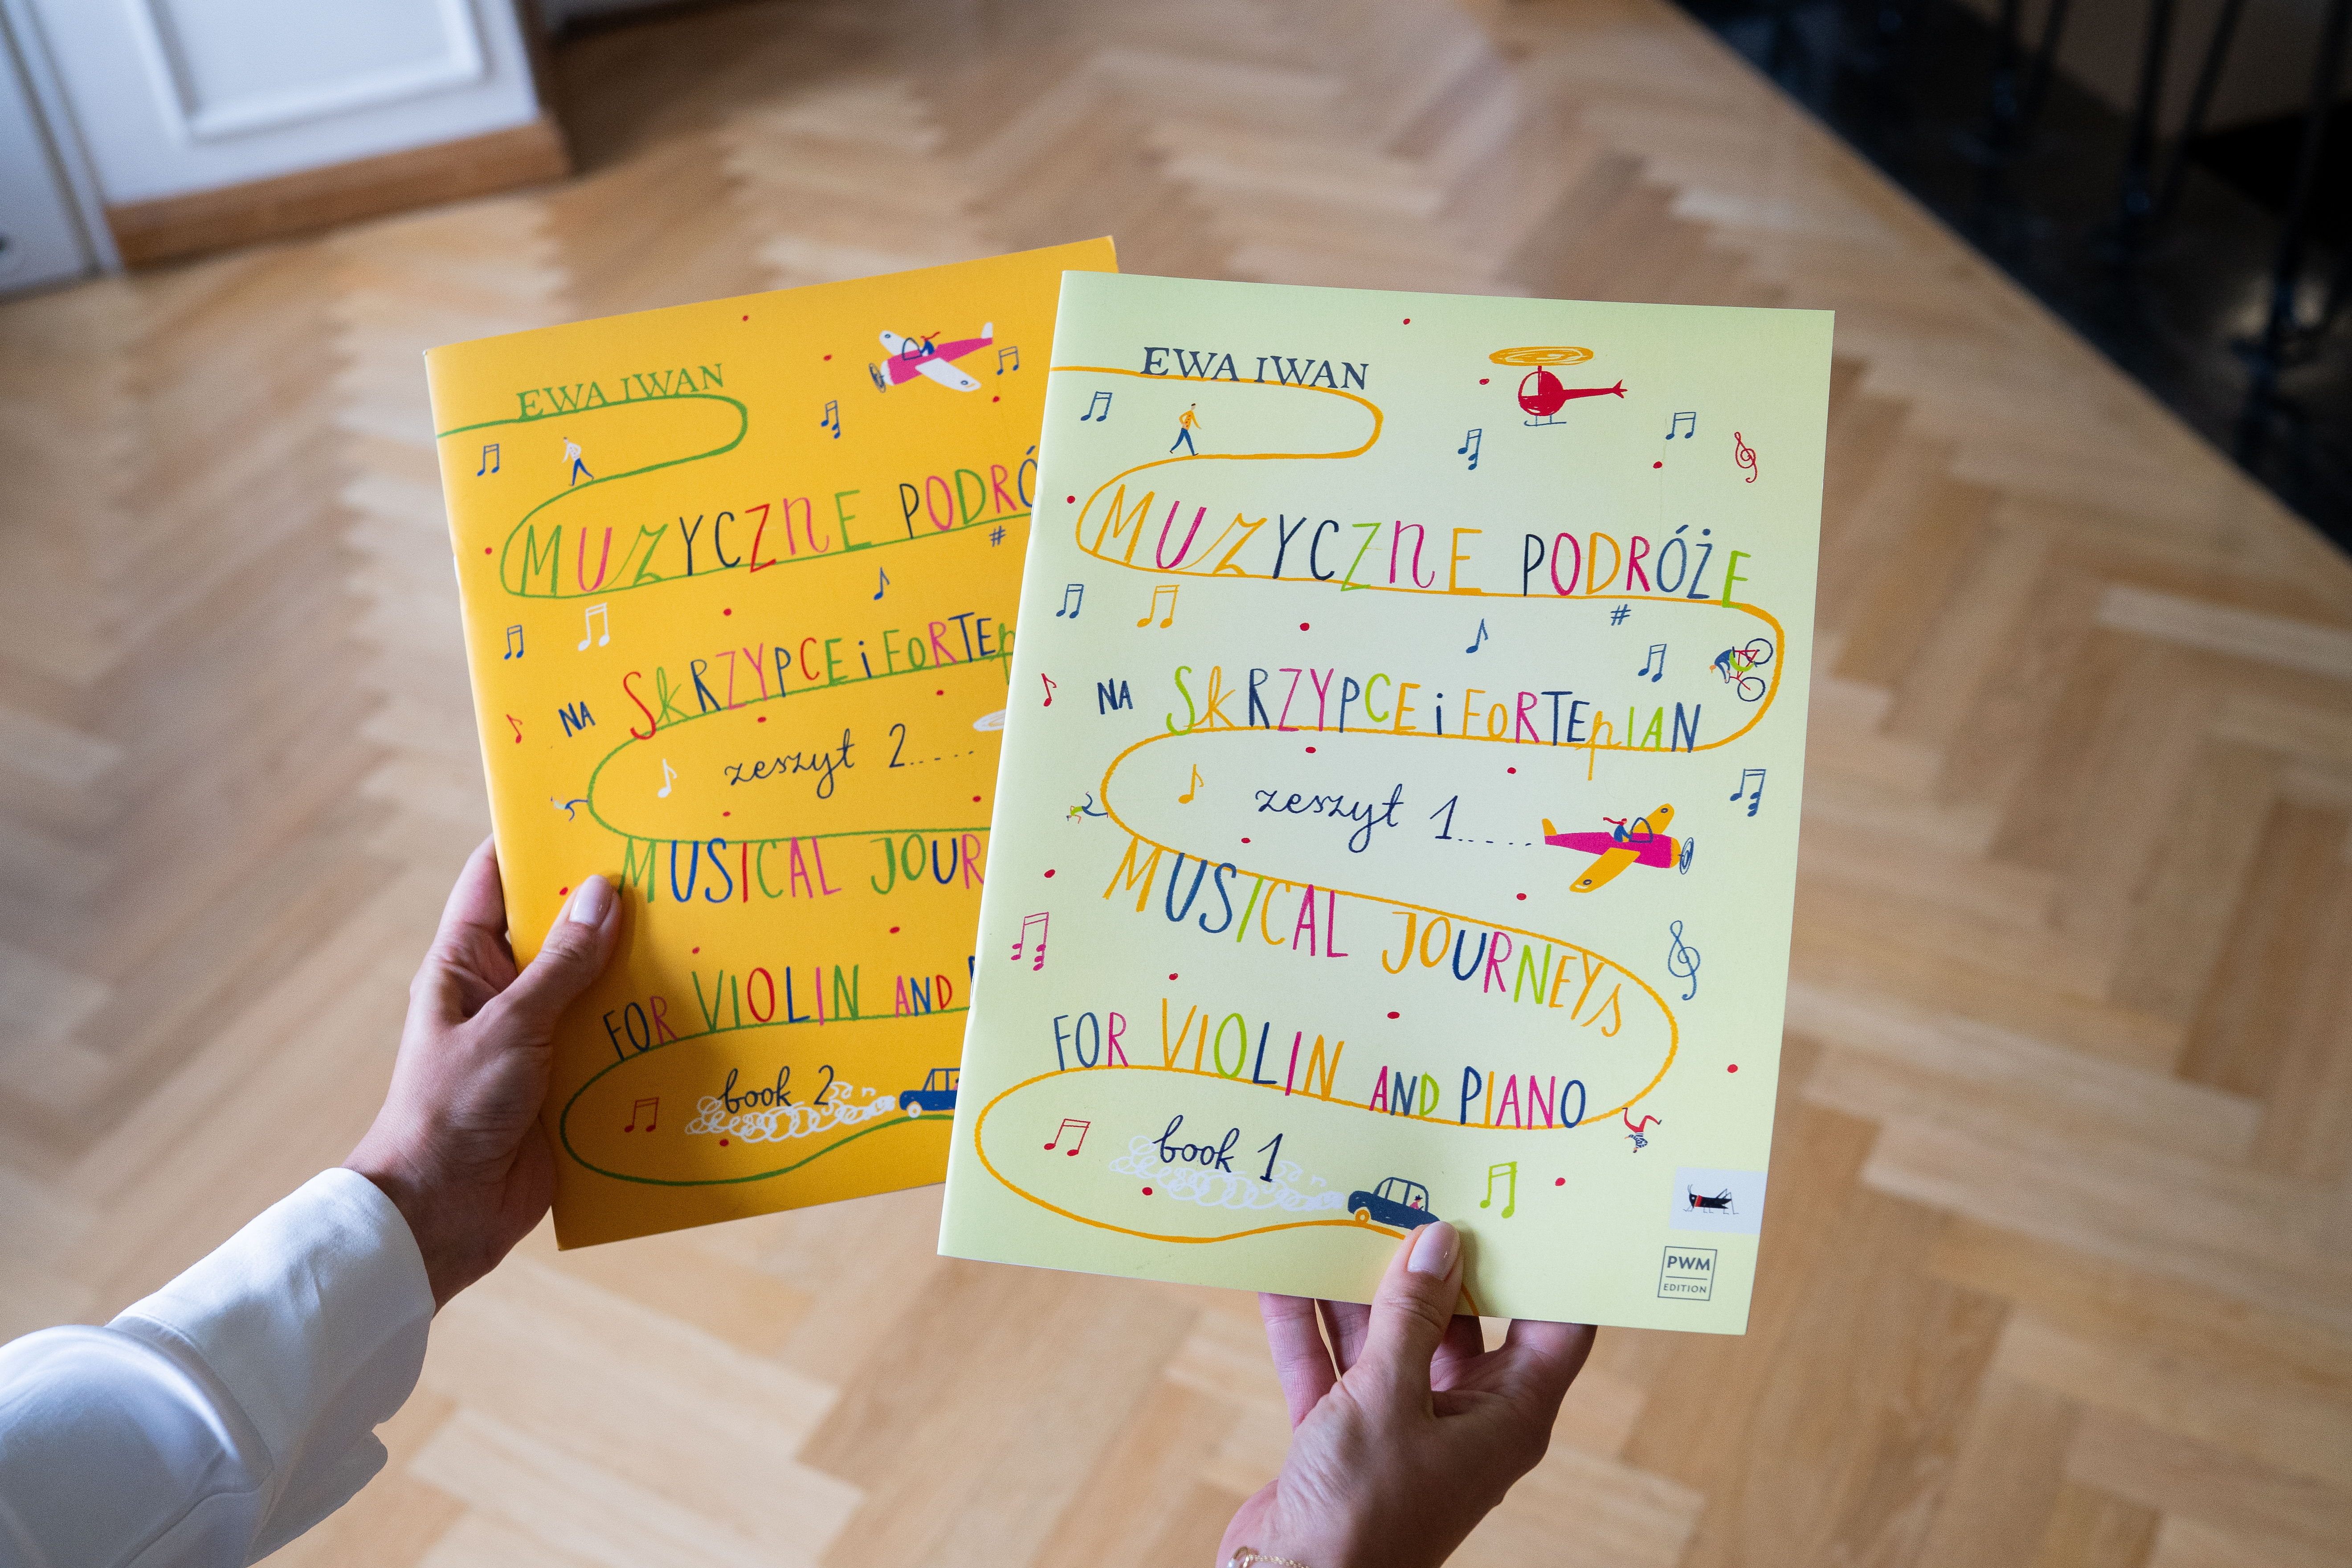 EWA IWAN
MUZYCZNE PODRÓ
NA SKRZYPCE i FORTEp
zeszyt 2.....
MUSICAL JOUR
FOR VIOLIN AND
book 2
EWA IWAN
MUZYCZNE PODRÓŻE
NA SKRZYPCE i FORTEpIAN
zeszyt 1.....
MUSICAL JOURNEYS
FOR VIOLIN AND PIANO
book 1
PWM
EDITION